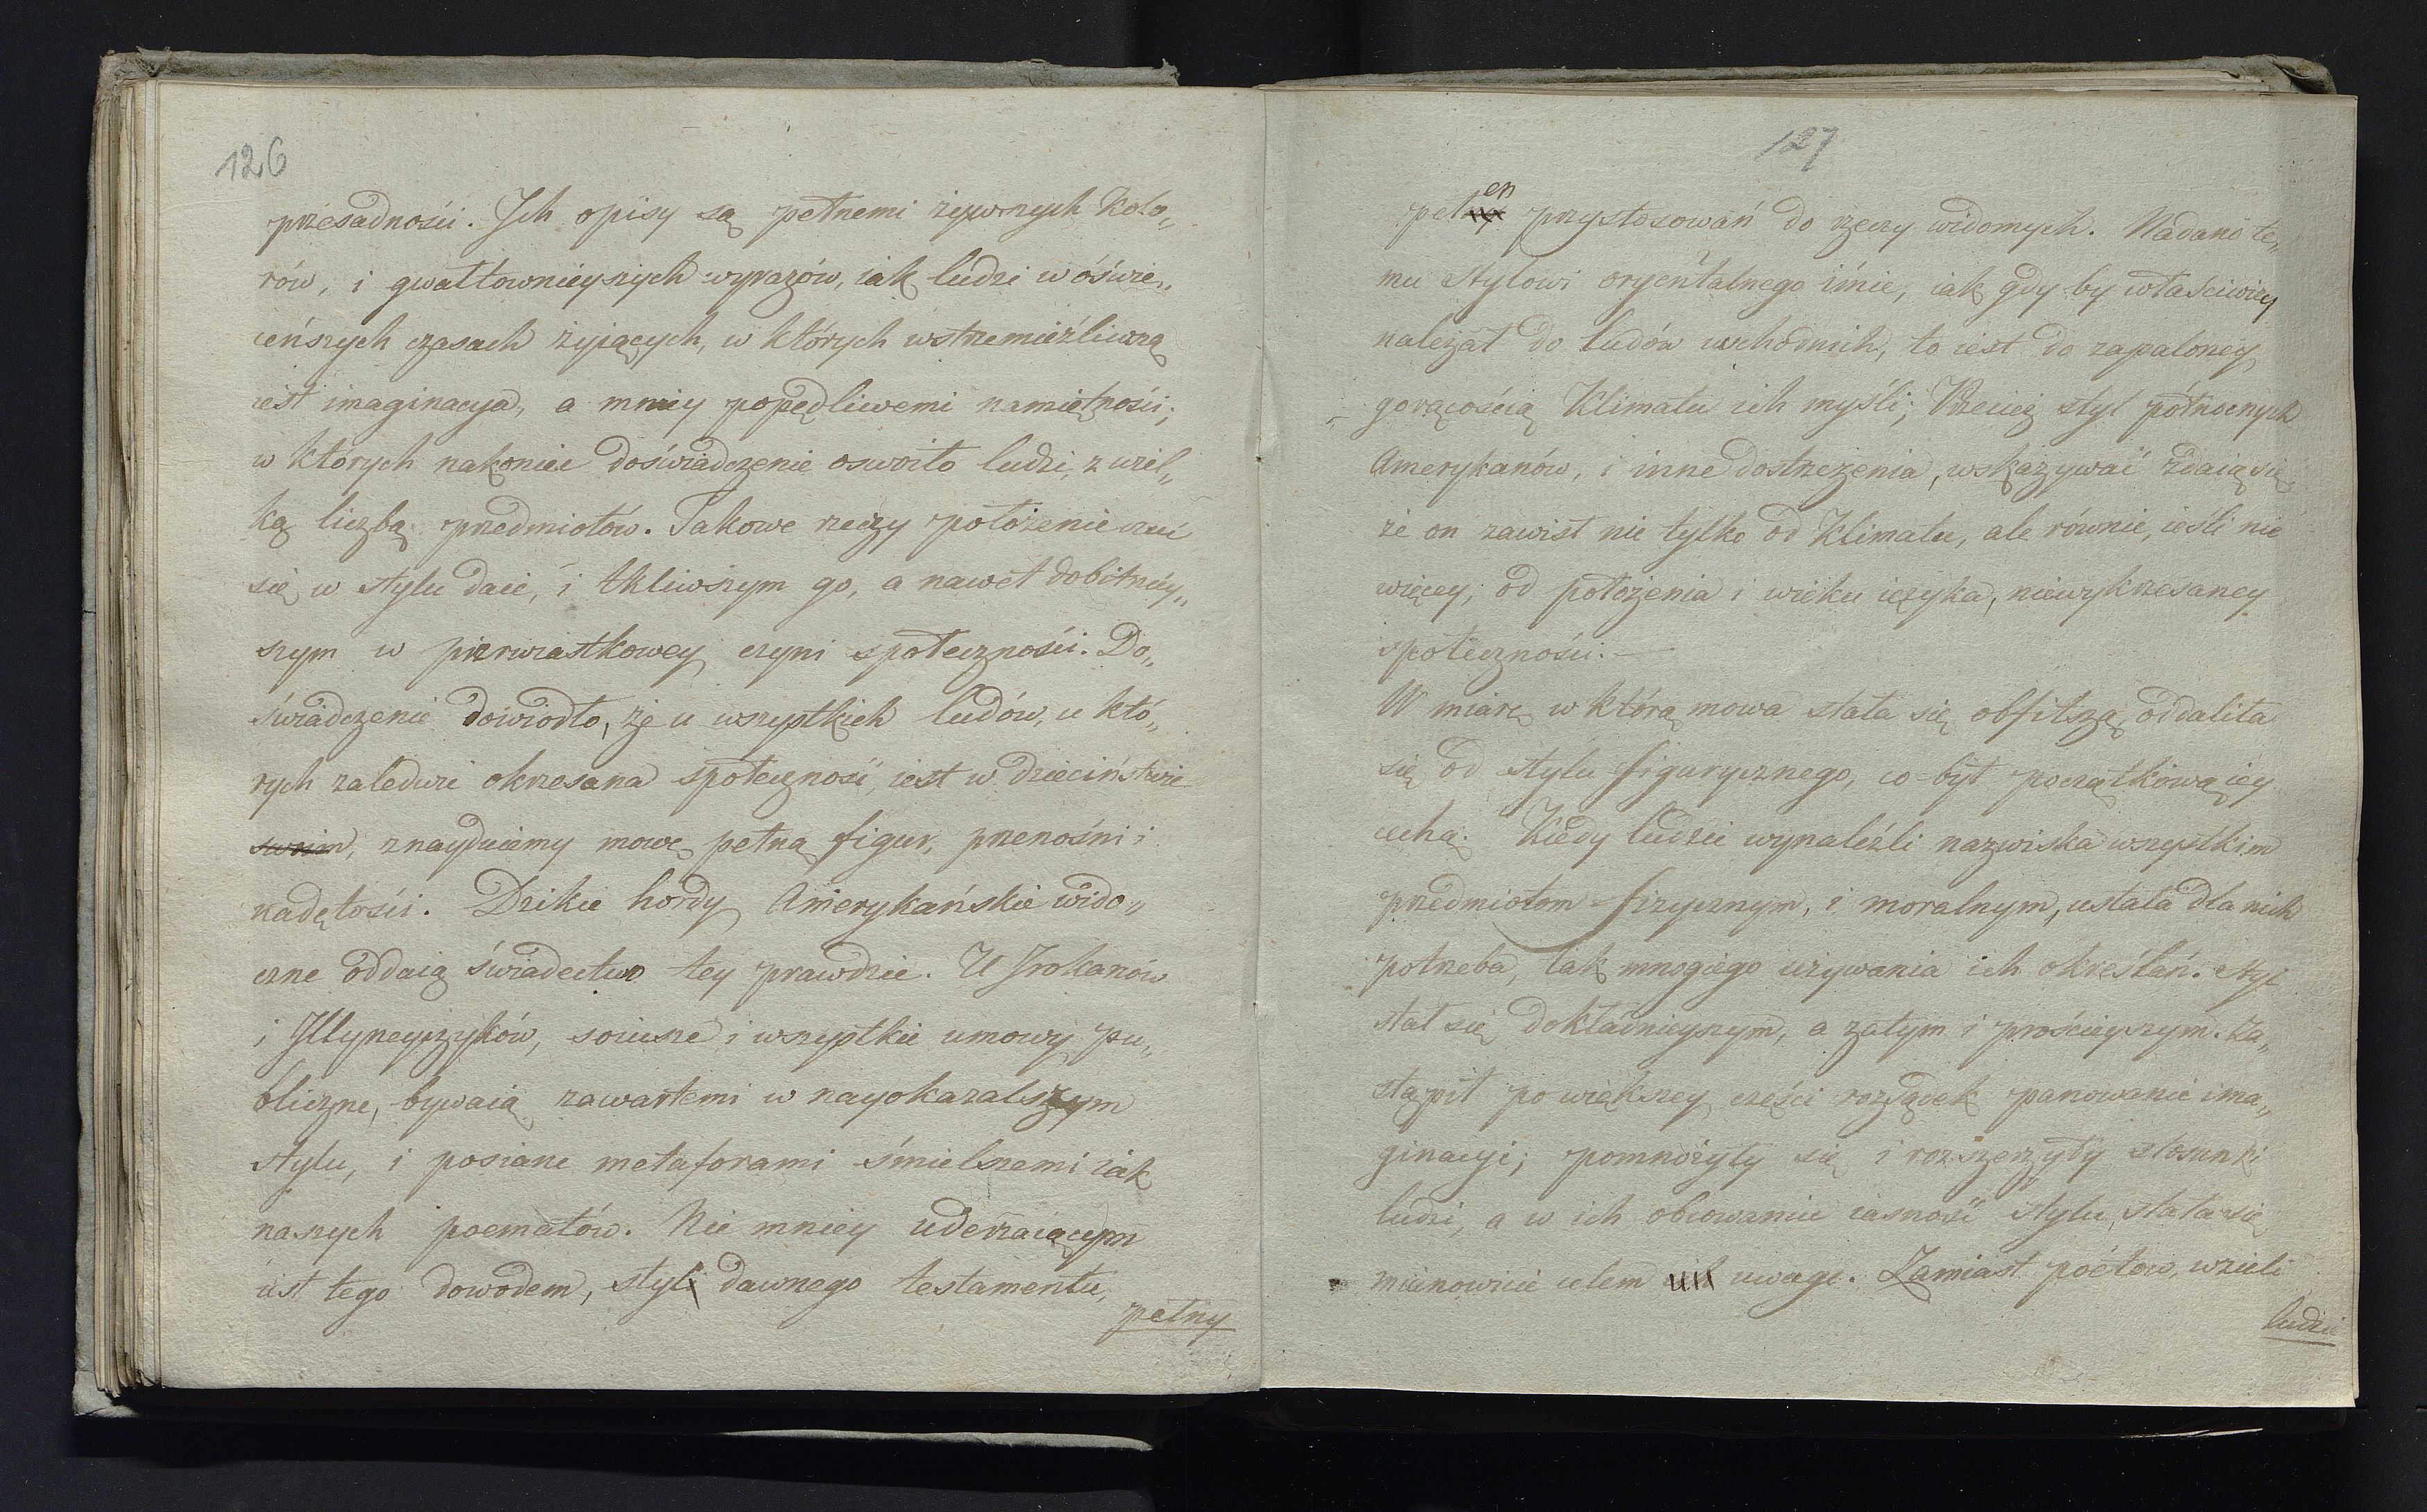 126
przesadności. Ich opisy są pełnemi żywszych kolo„
rów, i gwałtownieyszych wyrazów, iak ludzi w oświe„
ceńszych czasach żyjących, w których wstrzemieźliwszą
iest imaginacya, a mniey popędliwemi namiętności;
w których nakoniec doświadczenie oswoiło ludzi, z wiel„
ką liczbą przedmiotów. Takowe rzeczy położenie czuć
się w stylu daie, i tkliwszym go, a nawet dobitniey„
szym w pierwiastkowey czyni społeczności. Do„
świadczenie dowiodło, że u wszystkich ludów, u któ„
rych zaledwie okrzesana społeczność, iest w dzieciństwie
swoim, znayduiemy mowę pełną figur, przenośni i
nadętości. Dzikie hordy Amerykańskie wido„
czne oddaią świadectwo tey prawdzie. U Irokanów
i Illyneyczyków, soiusze i wszystkie umowy pu„
bliczne, bywaią zawartemi w nayokazalszym
stylu, i posiane metaforami śmielszemi iak
naszych poematów. Nie mniey uderzaiącym
iest tego dowodem, styl dawnego testamentu,
pełny
127
pełen przystosowań do rzeczy widomych. Nadano te„
mu stylowi oryentalnego imie, iak gdy by właściwiey
należał do ludów wschodnich, to iest do zapaloney
gorącością klimatu ich myśli; Przecież styl północnych
Amerykanów, i inne dostrzeżenia, wskazywać zdaią się
że on zawisł nie tylko od klimatu, ale równie, ieśli nie
więcey, od położenia i wieku ięzyka, niewykrzesaney
społeczności. —
W miarę w którą mowa stała się obfitszą, oddaliła
się od stylu figurycznego, co był początkową iey
cechą. Kiedy ludzie wynaleźli nazwiska wszystkim
przedmiotom fizycznym, i moralnym, ustała dla nich
potrzeba, tak mnogiego używania ich określań. Styl
stał się dokładnieyszym, a zatym i prościeyszym. Za„
stąpił po większey części rozsądek panowanie ima„
ginacyi; pomnożyły się i rozszerzyły stosunki
ludzi, a w ich obcowaniu iasność stylu, stała się
mianowicie celem uwagi. Zamiast poetów, wzieli
ludzie